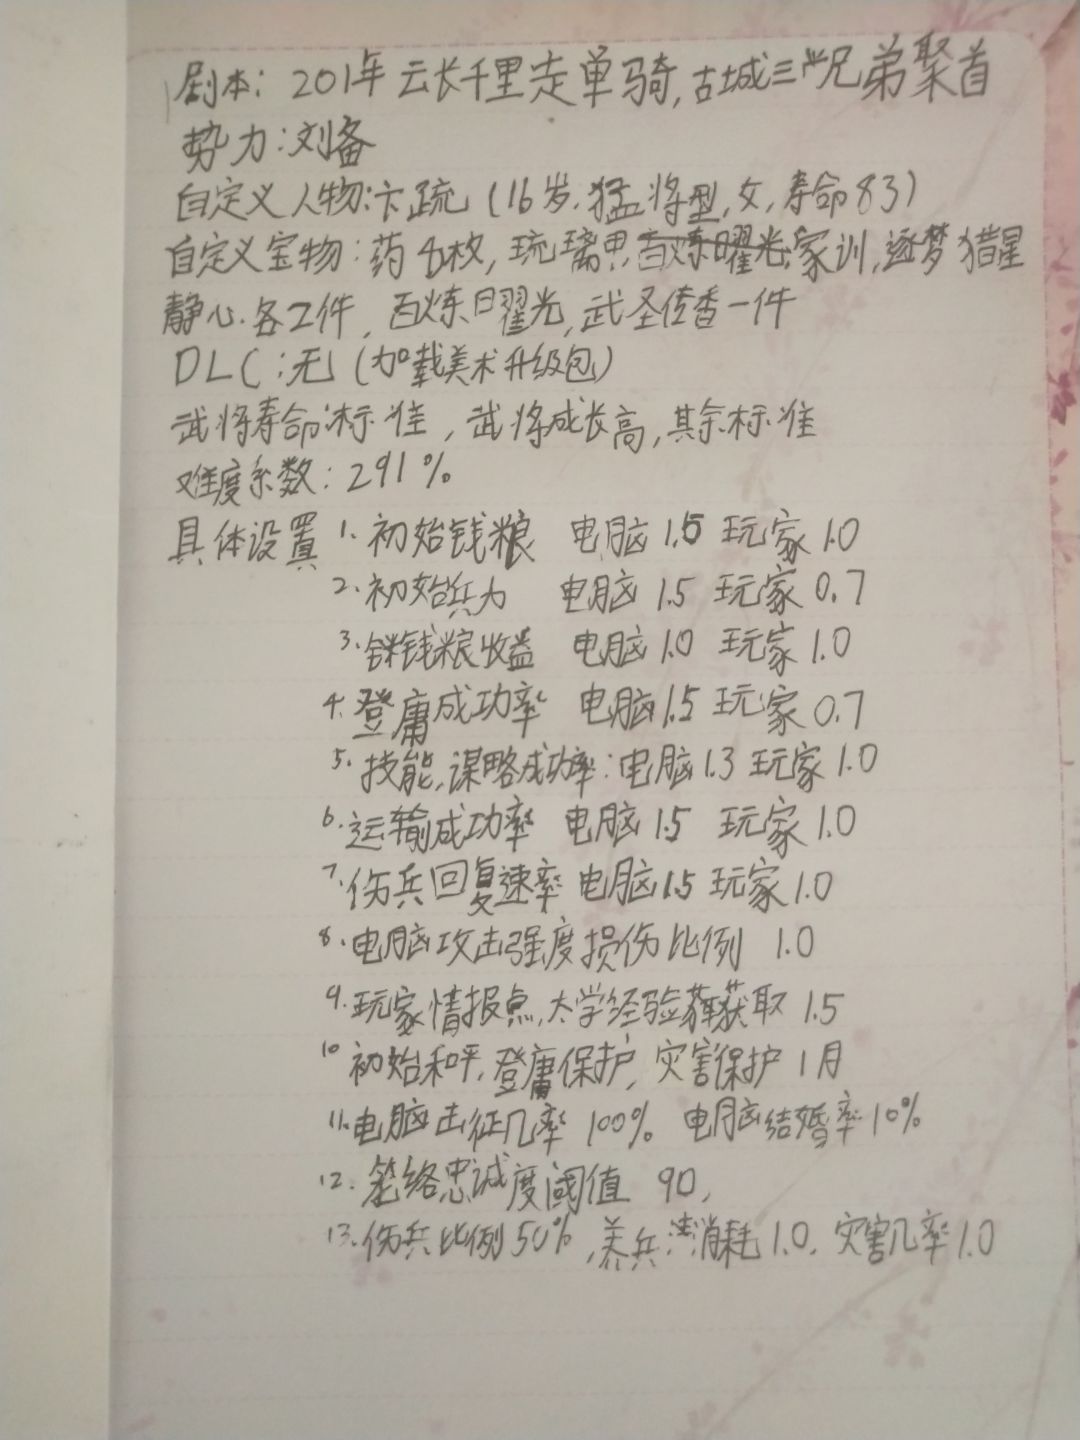 剧本: 201年 云长千里走单骑, 古城三兄弟聚首
势力:刘备
自定义人物:卞疏 (16岁.猛将型,女,寿命83)
自定义宝物:药8枚,琉璃思,百炼曜光,家训,逐梦猎星
静心.各2件,百炼日曜光,武圣传香一件
DLC:无 (加载美术升级包)
武将寿命:标准,武将成长高,其余标准
难度系数:291%
具体设置 1.初始钱粮 电脑1.5 玩家1.0
2.初始兵力 电脑1.5 玩家0.7
3.钱粮收益 电脑1.0 玩家1.0
4.登庸成功率 电脑1.5 玩家0.7
5.技能,谋略成功率:电脑1.3 玩家1.0
6.运输成功率 电脑1.5 玩家1.0
7.伤兵回复速率 电脑1.5 玩家1.0
8.电脑攻击强度损伤比例 1.0
9.玩家情报点,大学经验获取 1.5
10 初始和平,登庸保护,灾害保护1月
11.电脑出征几率 100% 电脑结婚率10%
12.笼络忠诚度阈值 90,
13.伤兵比例50%,养兵消耗1.0.灾害几率1.0